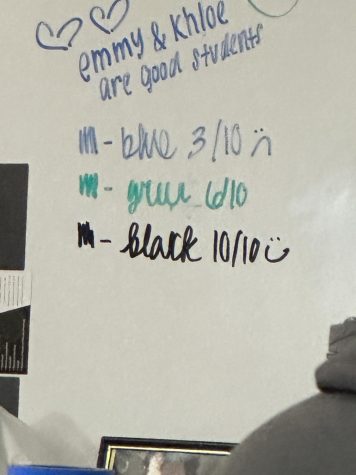 emmy & Khloe
are good students
m - blue 3/10 :(
m - green 6/10
m - black 10/10 :)